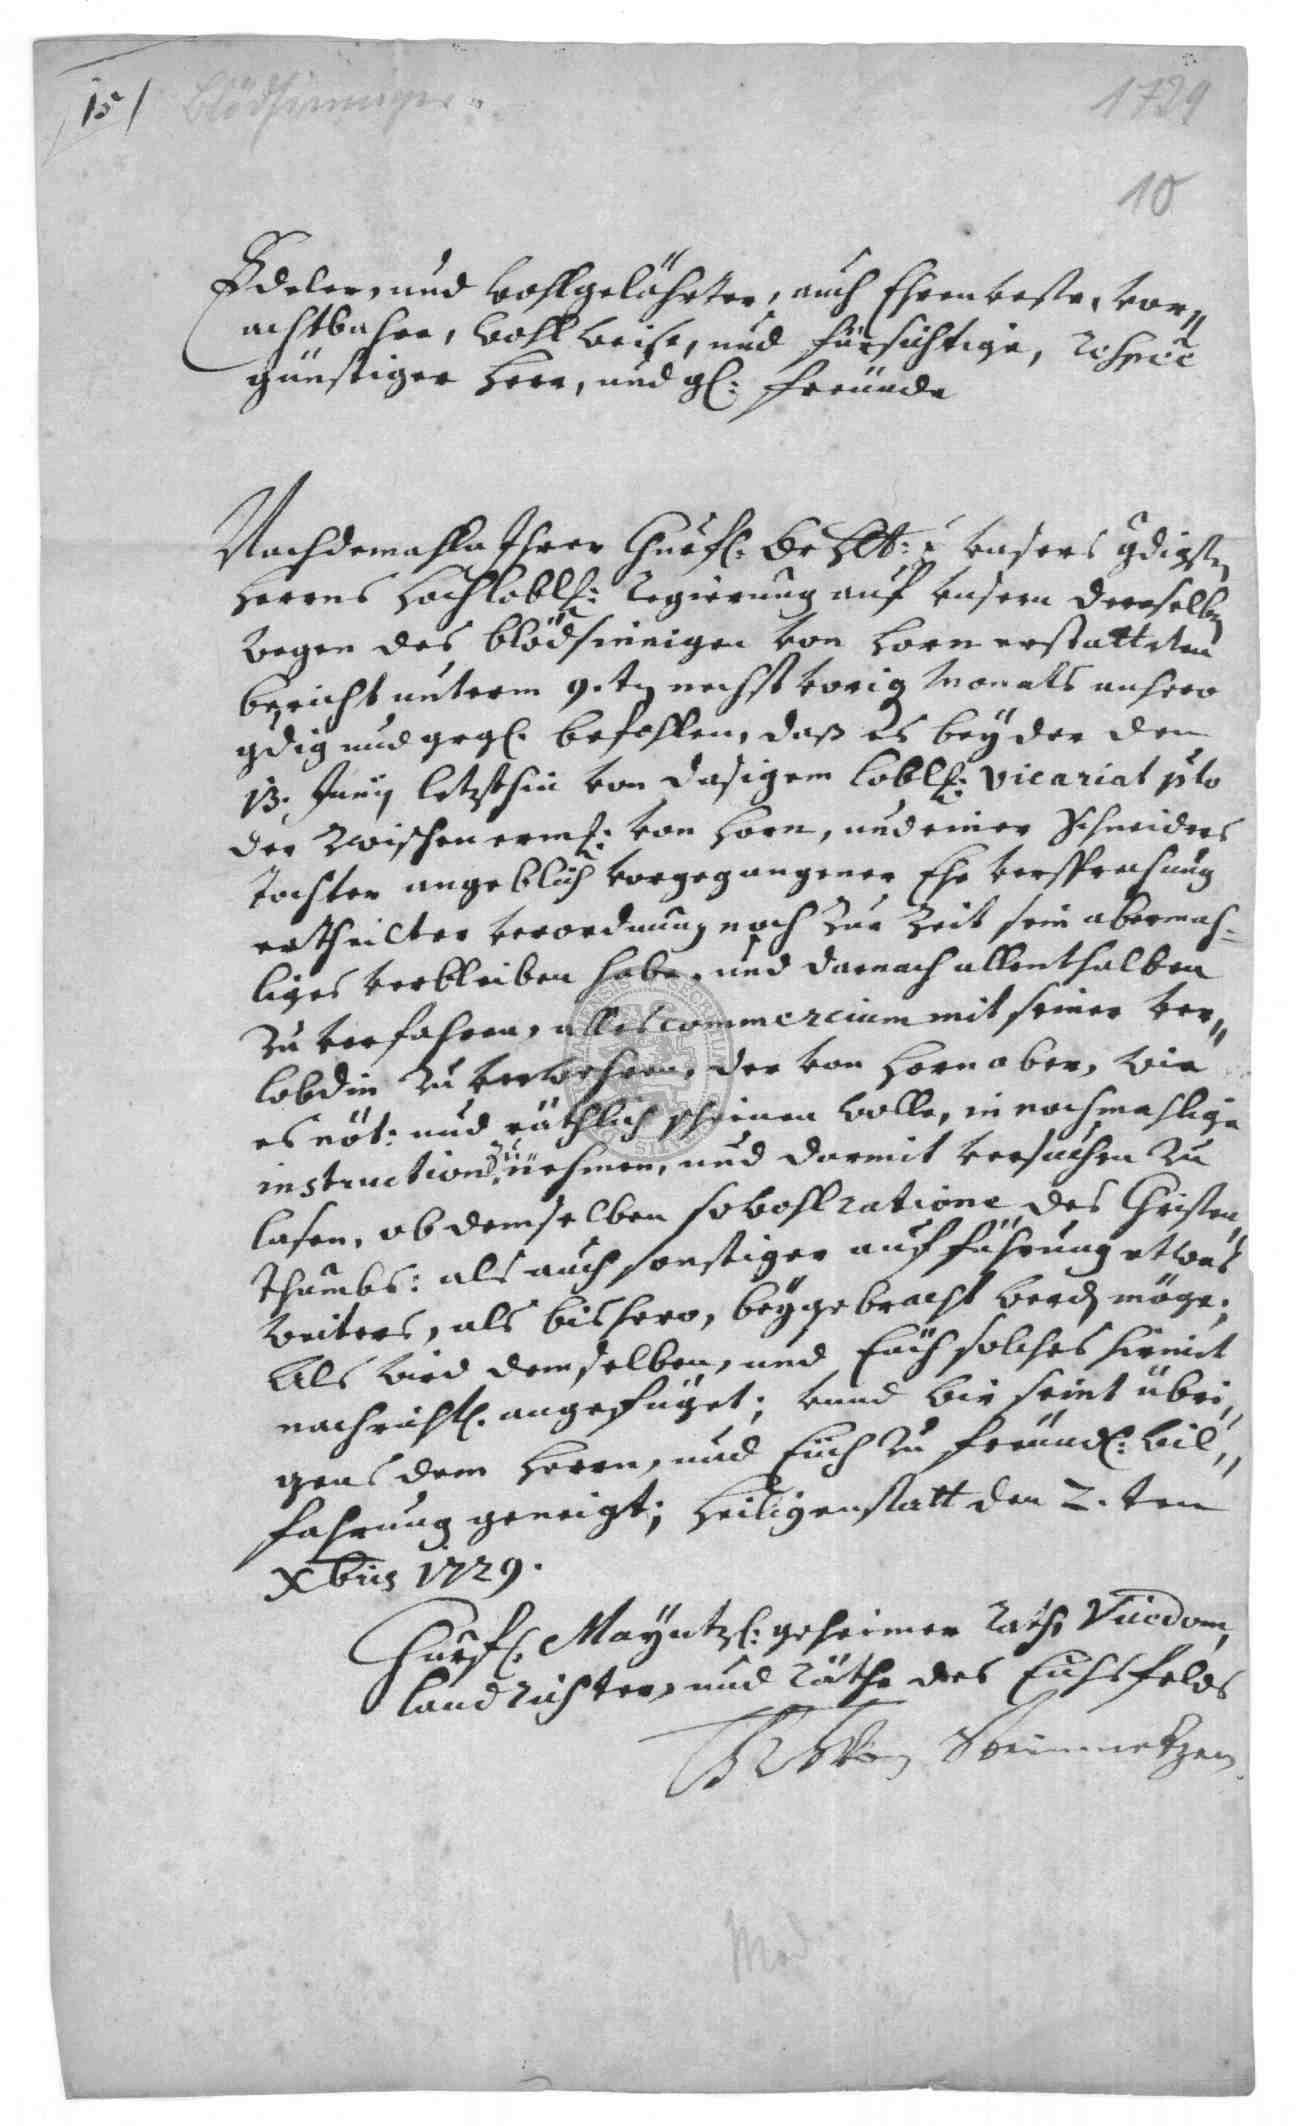 15/ Blödsinniger
1729
10
Edeler, und wohlgelährter, auch Ehrenveste, vor„
achtbahre, wohl weise, und fürsichtige, respve
günstiger Herr, und gl: freünde
Nachdemahln Ihrer Churfl: unsers gdigsten
Herrns Hochlöbl: Regierung auf unsern derselben
wegen des blödsinnigen von Horn erstatteten
bericht unterm 9.ten nechst vorig Monats anhero
gdig und befohlen, daß es bey der den
13. Junij letzthin von dasigem löbl: Vicariat pto
der zwischen erm: von Horn, und einer Schneiders
Tochter angeblich vorgegangener Ehe versprechung
ertheilter verordnung noch zur Zeit sein abermah-
liges verbleiben habe, und darnach allenthalben
zu verfahren, alles commercium mit seiner ver„
lobdin zu verwehren, der von Horn aber, wie
es nöt: und räthlich scheinen wolle, in nochmahlige
instruction zu nehmen, und darmit versuchen zu
lasen, ob demselben sowohl ratione des Christen„
thumbs: als auch sonstiger aufführung etwas
weiters, als bishero, beygebracht werden möge;
Als wird demselben, und Euch solches hiemit
nachrichtl. angefüget; und wir seint übri„
gens dem Herrn, und Euch zu freündl: wil„
fahrung geneigt; Heiligenstatt den 2.ten
Xbris 1729.
Churfl. Mayntzl: geheimer Rath, Vicedom,
Landrichter, und Räthe des Eichsfelds
Steinmetzen